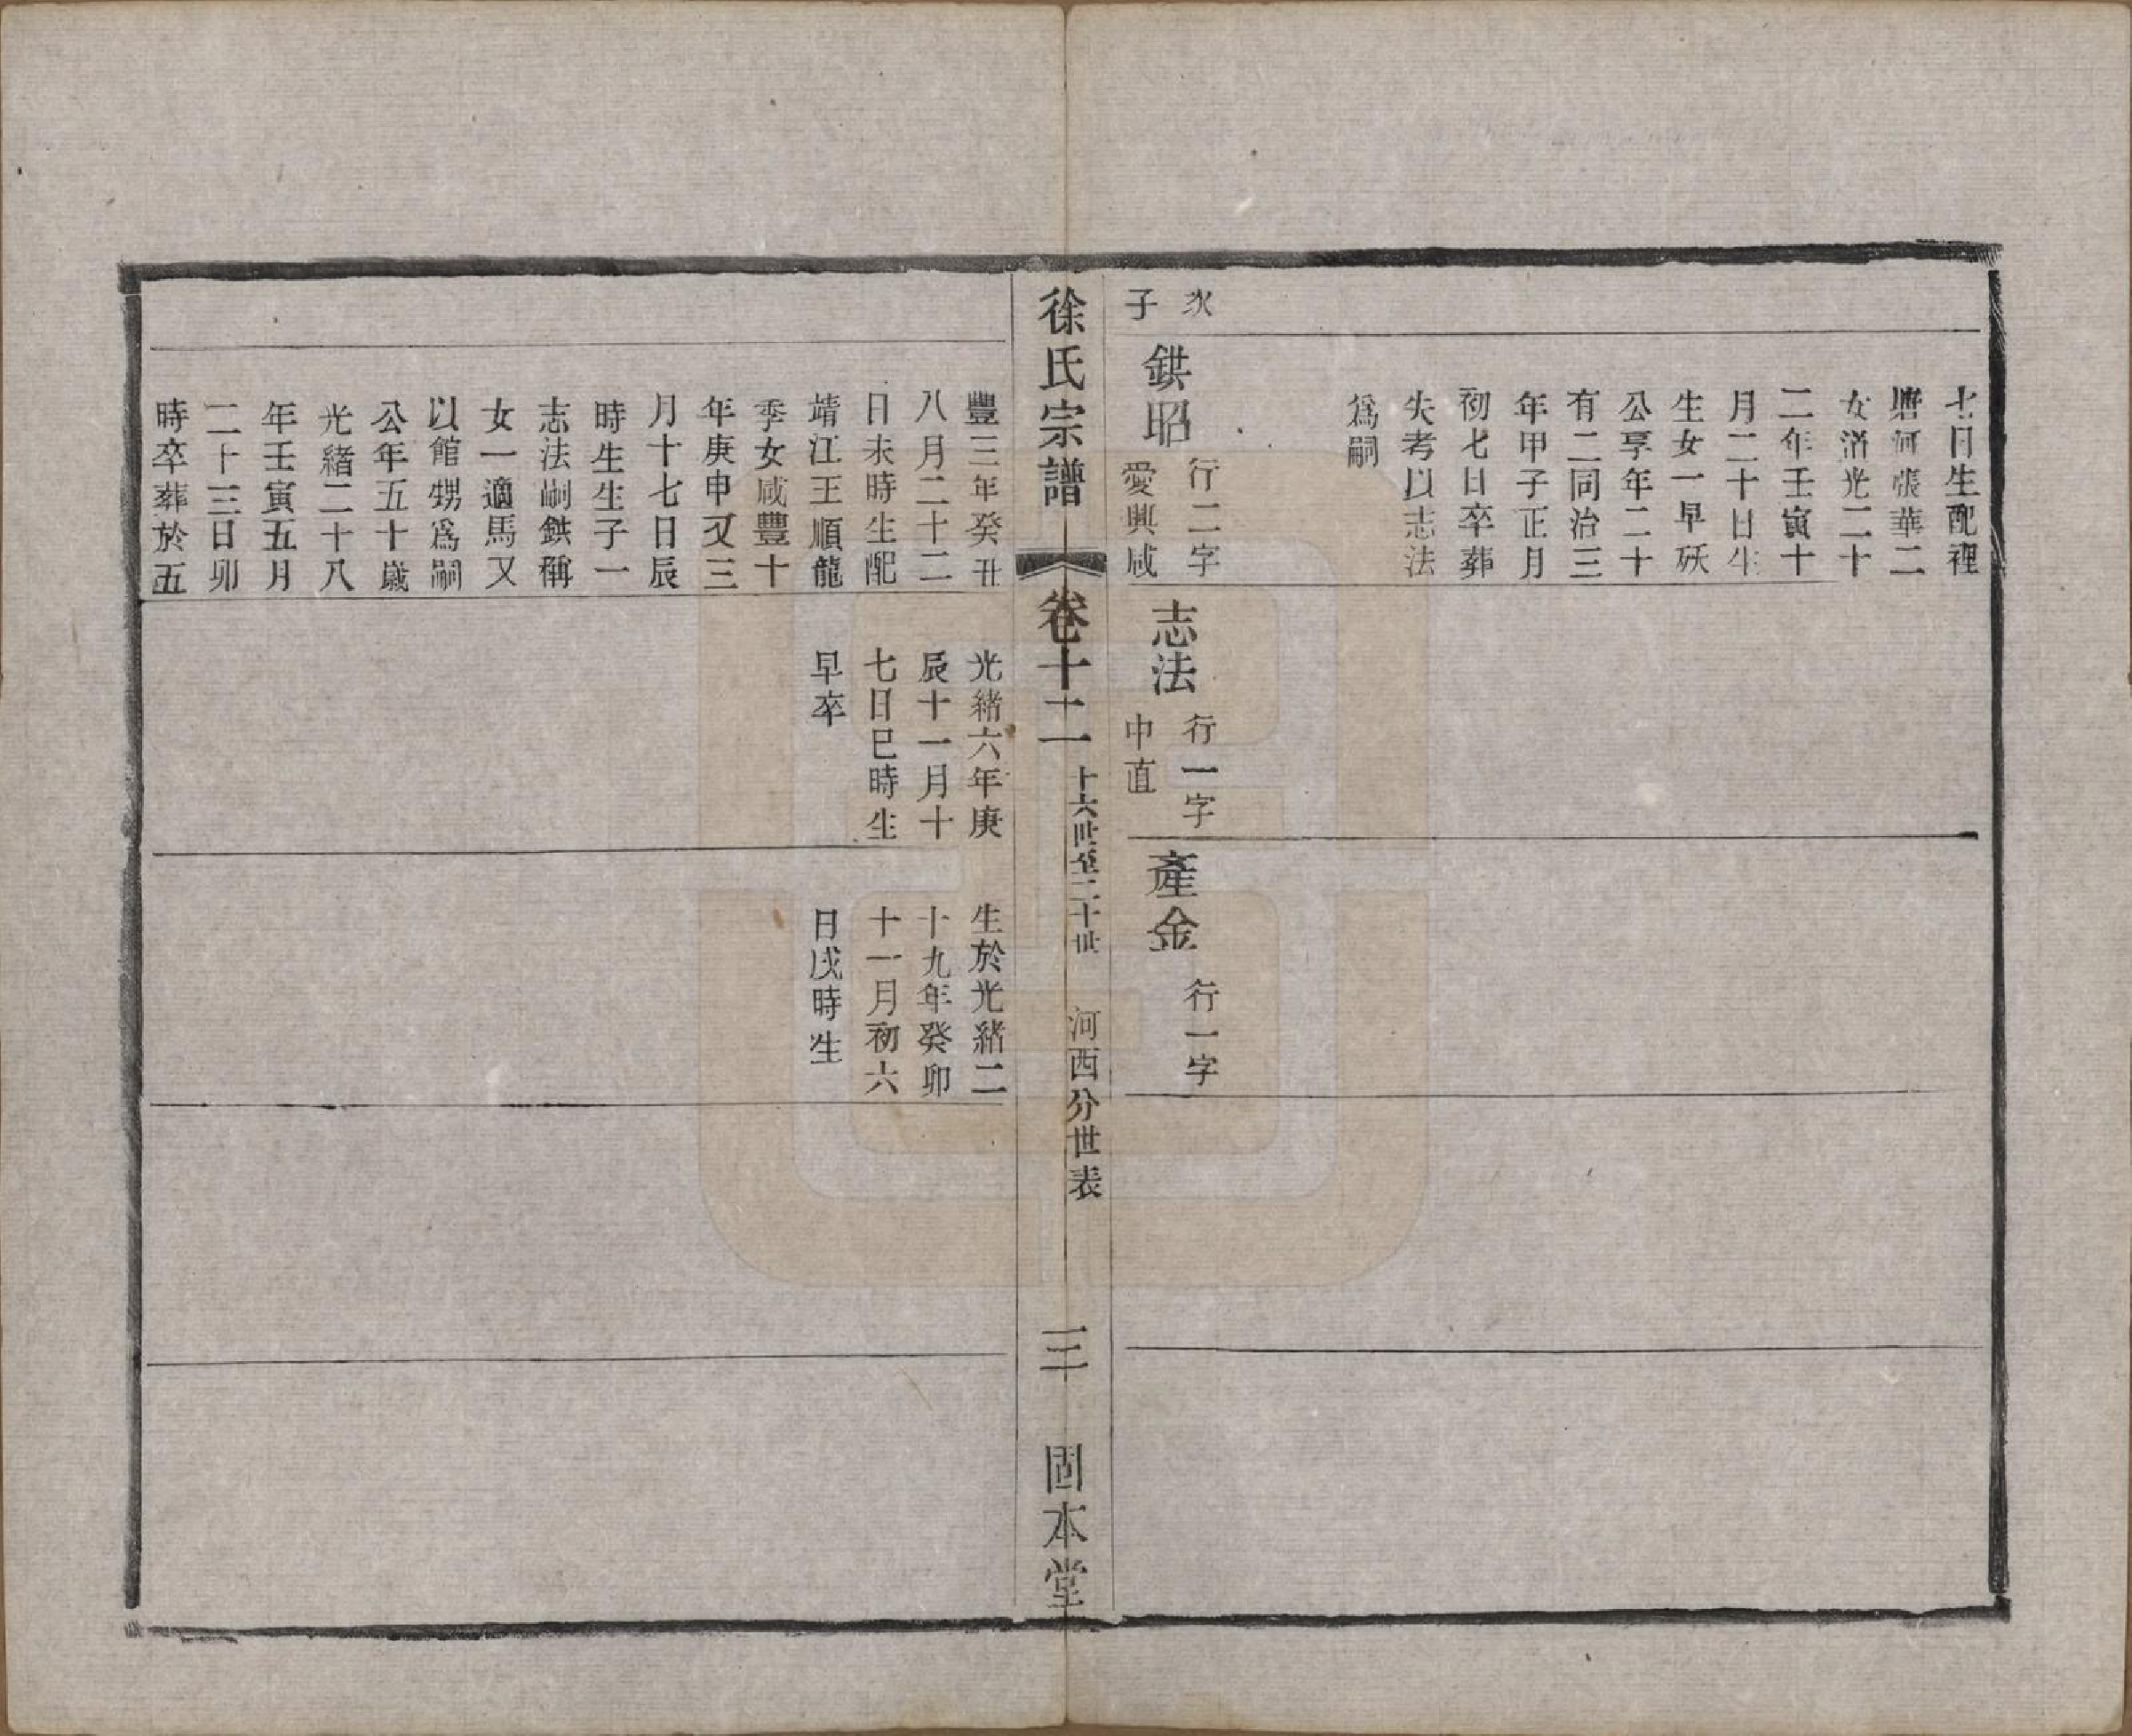 七日生配裡
塘河張華二
女道光二十
二年壬寅十
月二十日生
生女一早殀
公享年二十
有二同治三
年甲子正月
初七日卒葬
失考以志法
爲嗣
次
子
鉷昭
行二字
愛興咸
志法
行一字
中直
產金
行一字
徐氏宗譜
卷十二
十六世至二十世
河西分世表
三
固本堂
豐三年癸丑
八月二十二
日未時生配
靖江王順龍
季女咸豐十
年庚申又三
月十七日辰
時生生子一
志法嗣鉷稱
女一適馬又
以館甥爲嗣
公年五十歲
光緒二十八
年壬寅五月
二十三日卯
時卒葬於五
光緒六年庚
辰十一月十
七日巳時生
早卒
生於光緒二
十九年癸卯
十一月初六
日戌時生